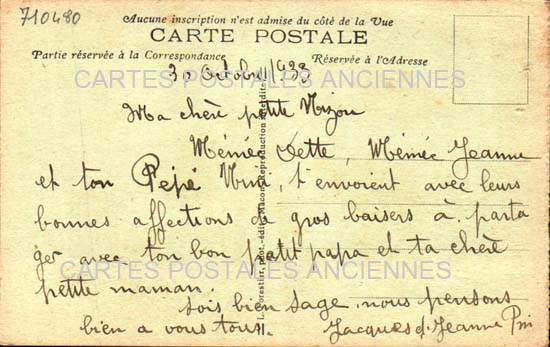 710480
Aucune inscription n'est admise du côté de la Vue
CARTE POSTALE
Partie réservée à la Correspondance
Réservée à l'Adresse
30 Octobre 1933
CARTES POSTALES ANCIENNES
Ma chère petite Mizou
Mémée Dette, Mémée Jeanne
et ton Pépé Nini, t'envoient avec leurs
bonnes affections de gros baisers à parta
ger avec ton bon petit papa et ta chère
CARTES POSTALES ANCIENNES
petite maman.
sois bien sage nous pensons
bien a vous tous.
Jacques & Jeanne
L. Forestier, phot.-édit. Macon Reproduction interdite